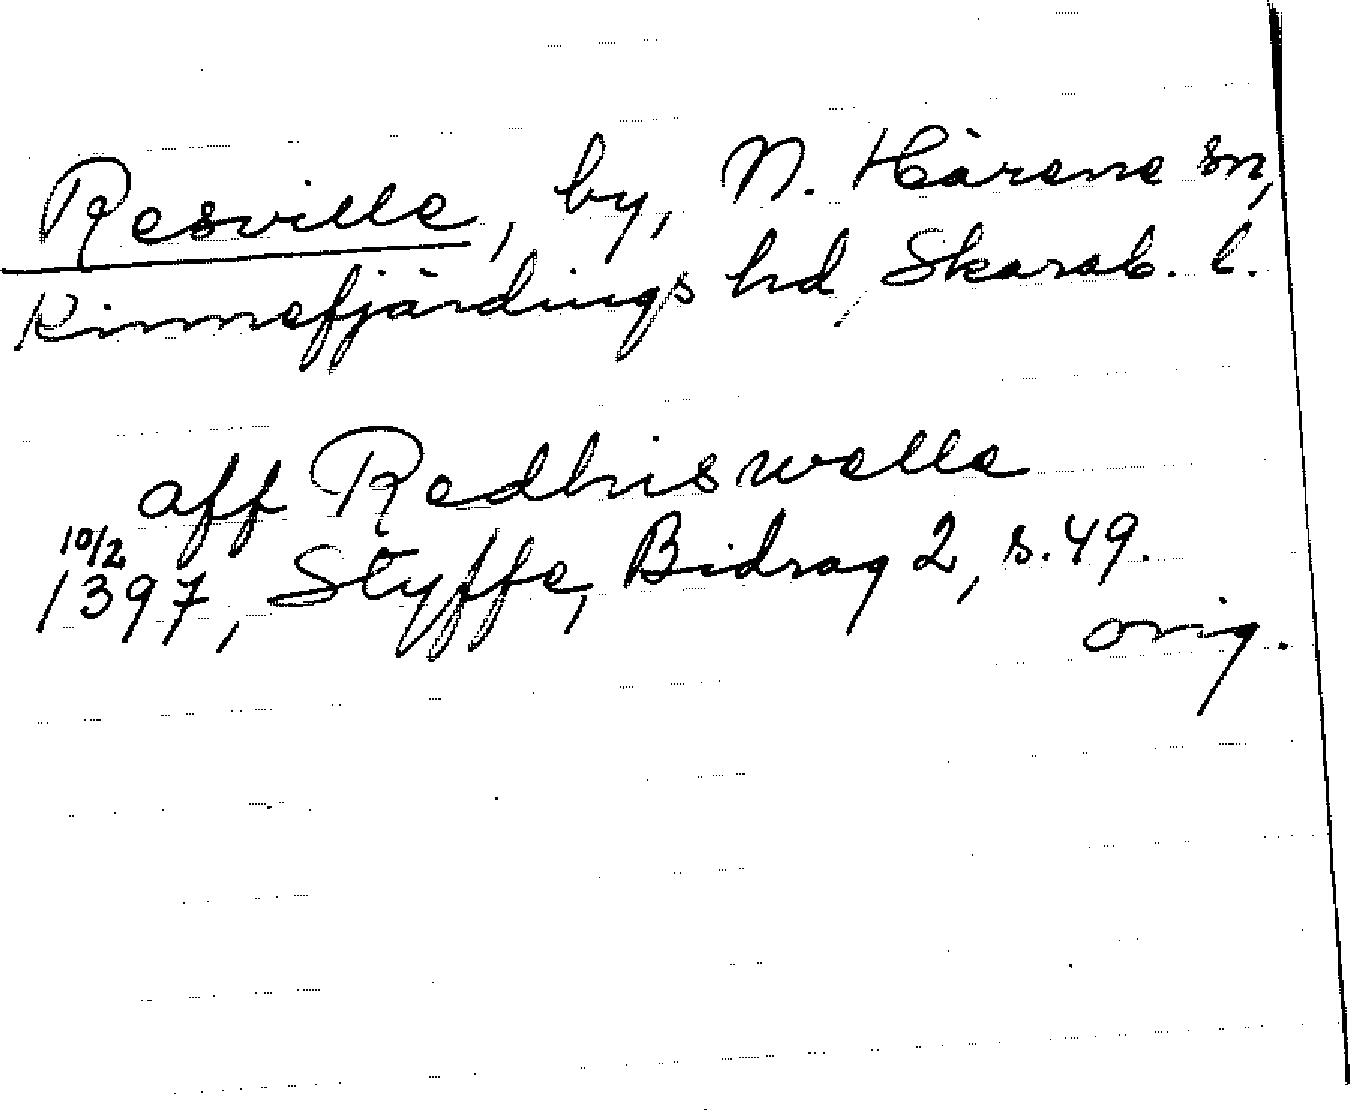 Resville, by, N. Härene sn,
Kinnefjärdings hd, Skarab. l.
aff Redhiswelle
10/2
1397, Styffe, Bidrag 2, s. 49.
orig.